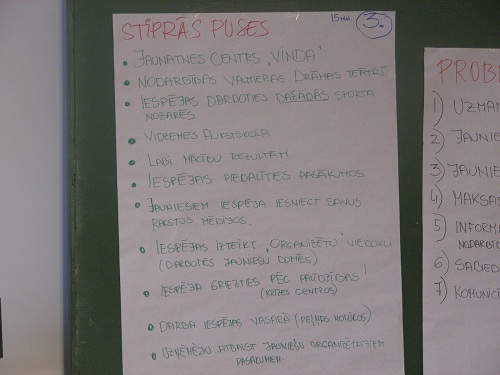 STIPRĀS PUSES
15 min.
3.
• JAUNATNES CENTRS „VINDA”
• NODARBĪBAS VALMIERAS DRĀMAS TEĀTRĪ
• IESPĒJAS DARBOTIES DAŽĀDĀS SPORTA
NOZARĒS
• VIDZEMES AUGSTSKOLA
• LABI MĀCĪBU REZULTĀTI
• IESPĒJAS PIEDALĪTIES PASĀKUMOS
• JAUNIEŠIEM IESPĒJA IESNIEGT SAVUS
RAKSTUS MĒDIJOS
• IESPĒJAS IZTEIKT „ORGANIZĒTU” VIEDOKLI
(DARBOTIES JAUNIEŠU DOMĒS)
• IESPĒJA GRIEZTIES PĒC PALĪDZĪBAS!
(KRĪZES CENTROS)
• DARBA IESPĒJAS VASARĀ (PEĻŅAS NOLŪKOS)
• UZŅĒMĒJU ATBALSTS JAUNIEŠU ORGANIZĒTAJIEM
PASĀKUMIEM
PROB
1) UZMAN
2) JAUNIE
3) JAUNIE
4) MAKSA
5) INFORM
NODARBĪB
6) SABIED
7) KOMUNIC